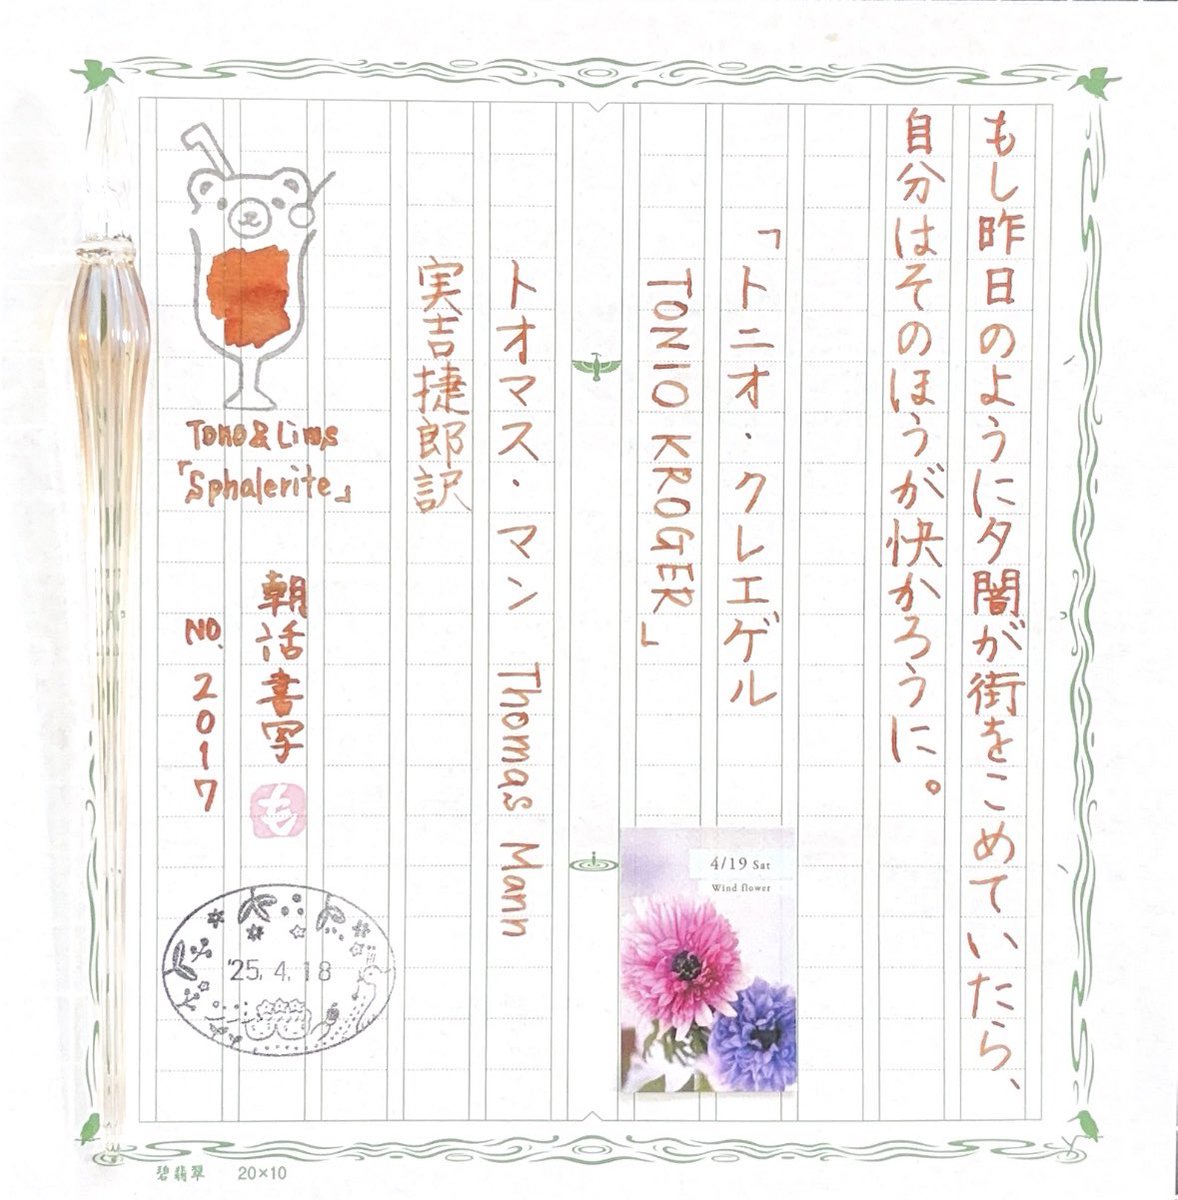 もし昨日のように夕闇が街をこめていたら、
自分はそのほうが快かろうに。
「トニオ・クレエゲル
TONIO KROGER」
トオマス・マン Thomas Mann
実吉捷郎訳
Tono & Lims
「Sphalerite」
朝活書写
も
NO.2017
4/19 Sat
Wind flower
'25.4.18
碧翡翠 20×10